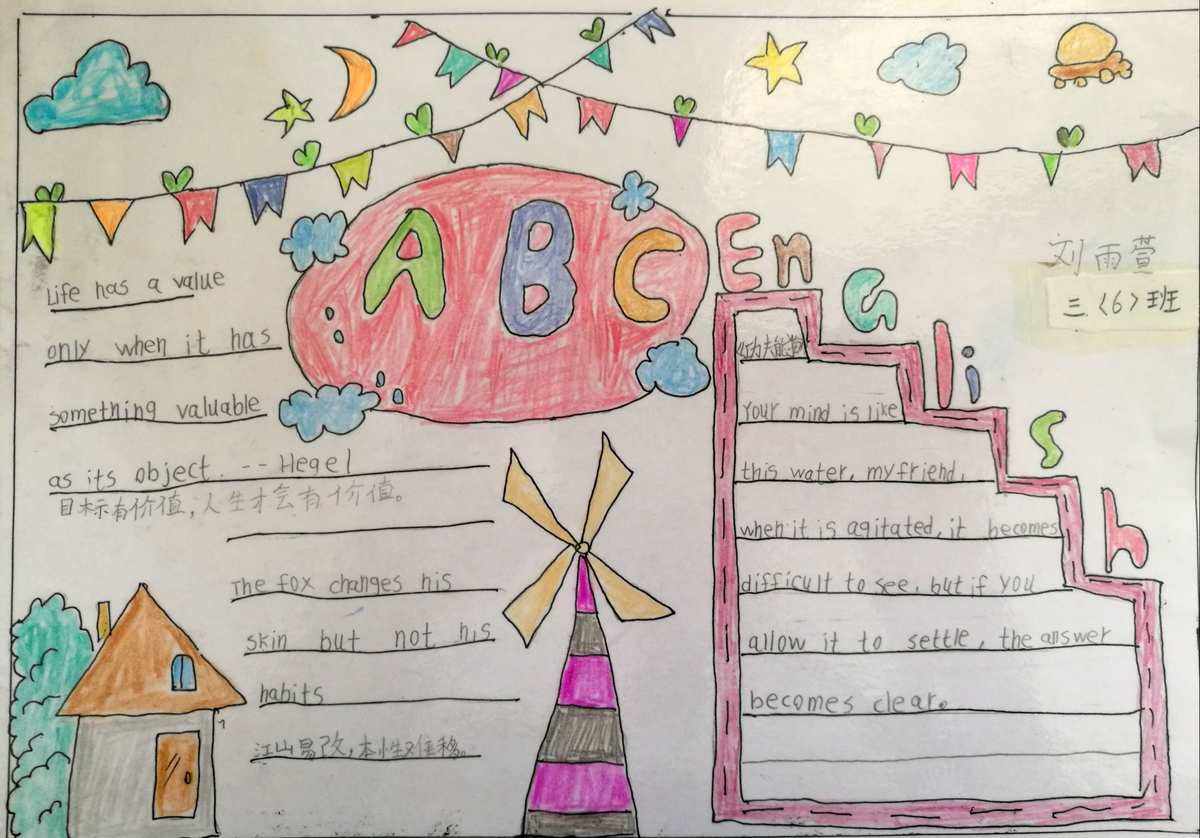 A B C
English
刘雨萱
三〈6〉班
Life has a value
only when it has
something valuable
as its object. -- Hegel
目标有价值，人生才会有价值。
The fox changes his
skin but not his
habits
江山易改，本性难移。
功夫熊猫
Your mind is like
this water, my friend,
when it is agitated, it becomes
difficult to see. but if You
allow it to settle, the answer
becomes clear。